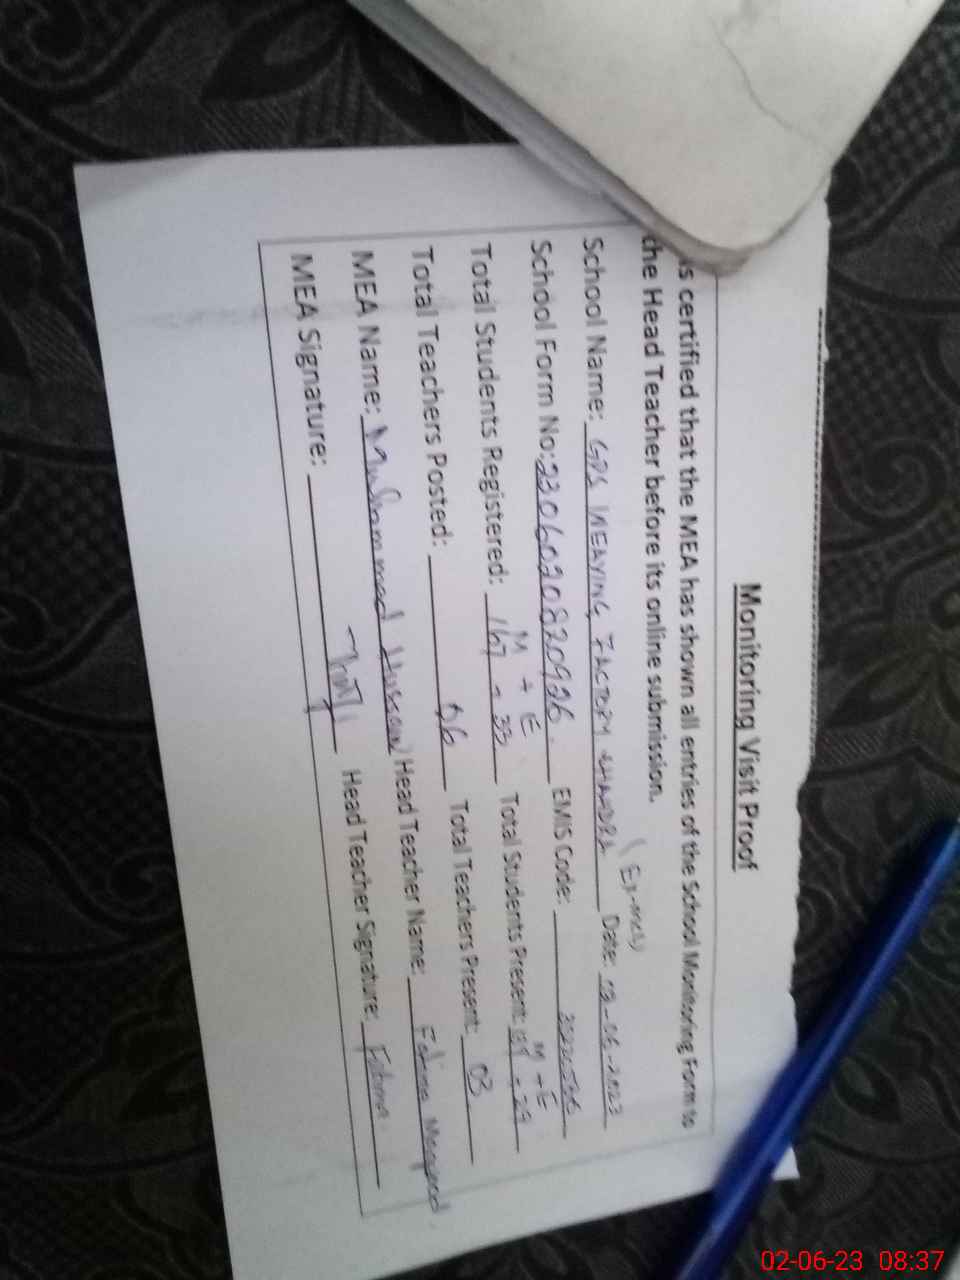 Monitoring Visit Proof
is certified that the MEA has shown all entries of the School Monitoring Form to
the Head Teacher before its online submission.
(Evening)
School Name: GPS WEAVING FACTORY Date: 02-06-2023
School Form No: 2306020820926 EMIS Code:
M + E M + E
Total Students Registered: 167 - 33 Total Students Present: - 29
Total Teachers Posted: 06 Total Teachers Present: 03
MEA Name: Muhammad Hassan Head Teacher Name: Fatima
MEA Signature: Head Teacher Signature: Fatima
02-06-23 08:37